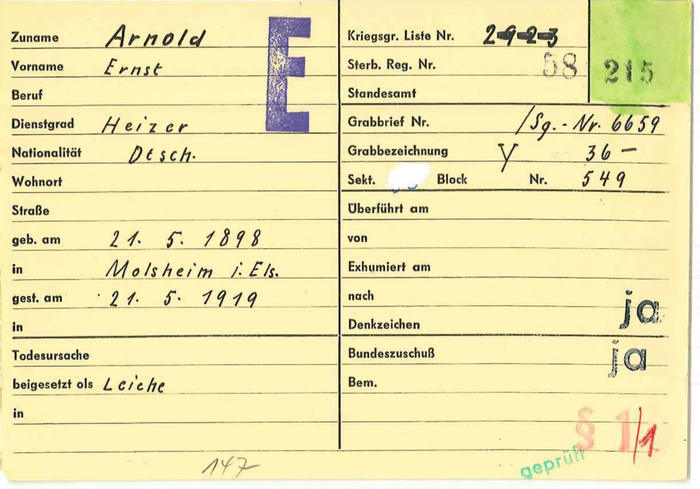 Zuname Arnold
Vorname Ernst
Beruf
Dienstgrad Heizer
Nationalität Dtsch.
Wohnort
Straße
geb. am 21. 5. 1898
in Molsheim i. Els.
gest. am 21. 5. 1919
in
Todesursache
beigesetzt als Leiche
in
147
E
Kriegsgr. Liste Nr. 2923
Sterb. Reg. Nr. 58 215
Standesamt
Grabbrief Nr. /Sg.-Nr. 6659
Grabbezeichnung Y 36 -
Sekt. Block Nr. 549
Überführt am
von
Exhumiert am
nach
Denkzeichen ja
Bundeszuschuß ja
Bem.
§ 1/1
geprüft